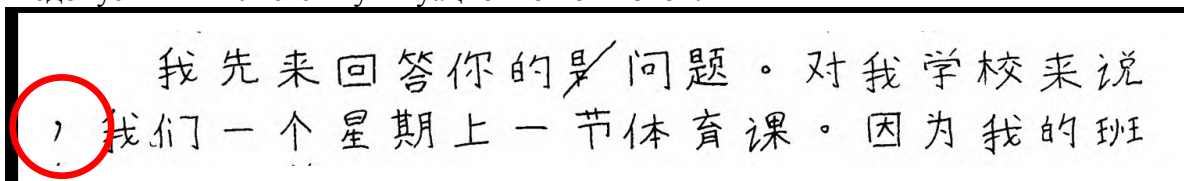 我先来回答你的问题。对我学校来说
，我们一个星期上一节体育课。因为我的班